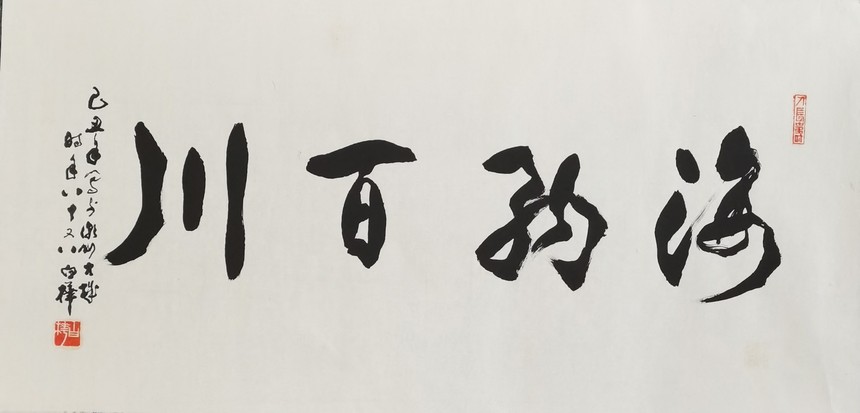 海納百川
己丑年
时年八十又八